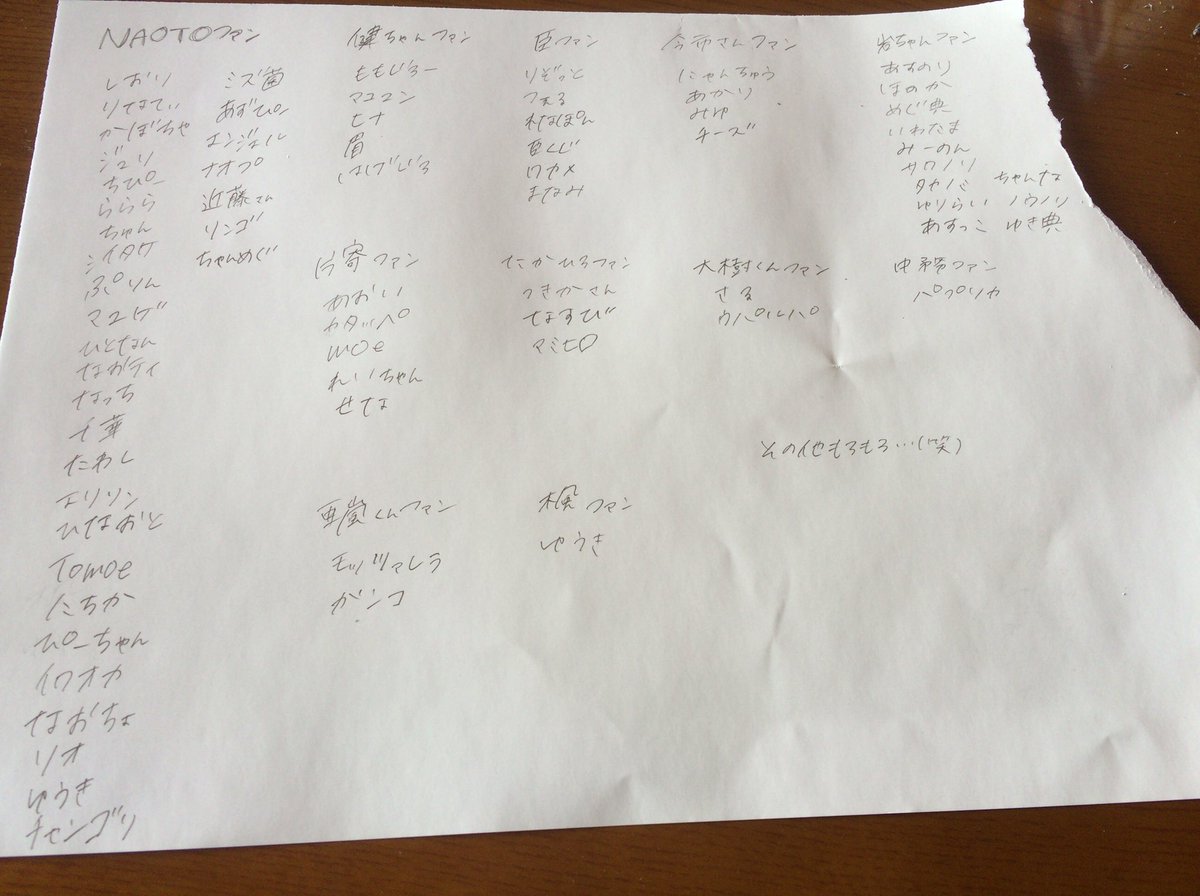 NAOTOファン
しおり
りなてぃ
かぼちゃ
ジュリ
ちぴー
ららら
ちゃん
シイタケ
ぷりん
マユゲ
ひとなん
なおティ
なっち
千華
たわし
エリリン
ひなおと
Tomoe
にちか
ぴーちゃん
イワオカ
なおちょ
リオ
ゆうき
チャンゴリ
ミズ菌
あずぴー
エンジェル
ナオプ
近藤さん
リンゴ
ちゃんめぐ
健ちゃんファン
ももじろー
マユユン
ヒナ
眉
はげじろ
臣ファン
りぞっと
フェる
れなぽん
臣くじ
ワカメ
まなみ
今市さんファン
にゃんちゅう
あかり
みゆ
チーズ
岩ちゃんファン
あすのり
ほのか
めぐ典
いわたま
みーのん
サワノリ
タカノバ ちゃんな
ゆりらい ノウノリ
あすっこ ゆき典
片寄ファン
あおい
カタッペ
moe
れいちゃん
せな
たかひろファン
つきかさん
なすび
マミヒロ
大樹くんファン
さる
ウパルパ
中務ファン
パプリカ
その他もろもろ…(笑)
亜嵐くんファン
モッツァレラ
ガンコ
楓ファン
ゆうき